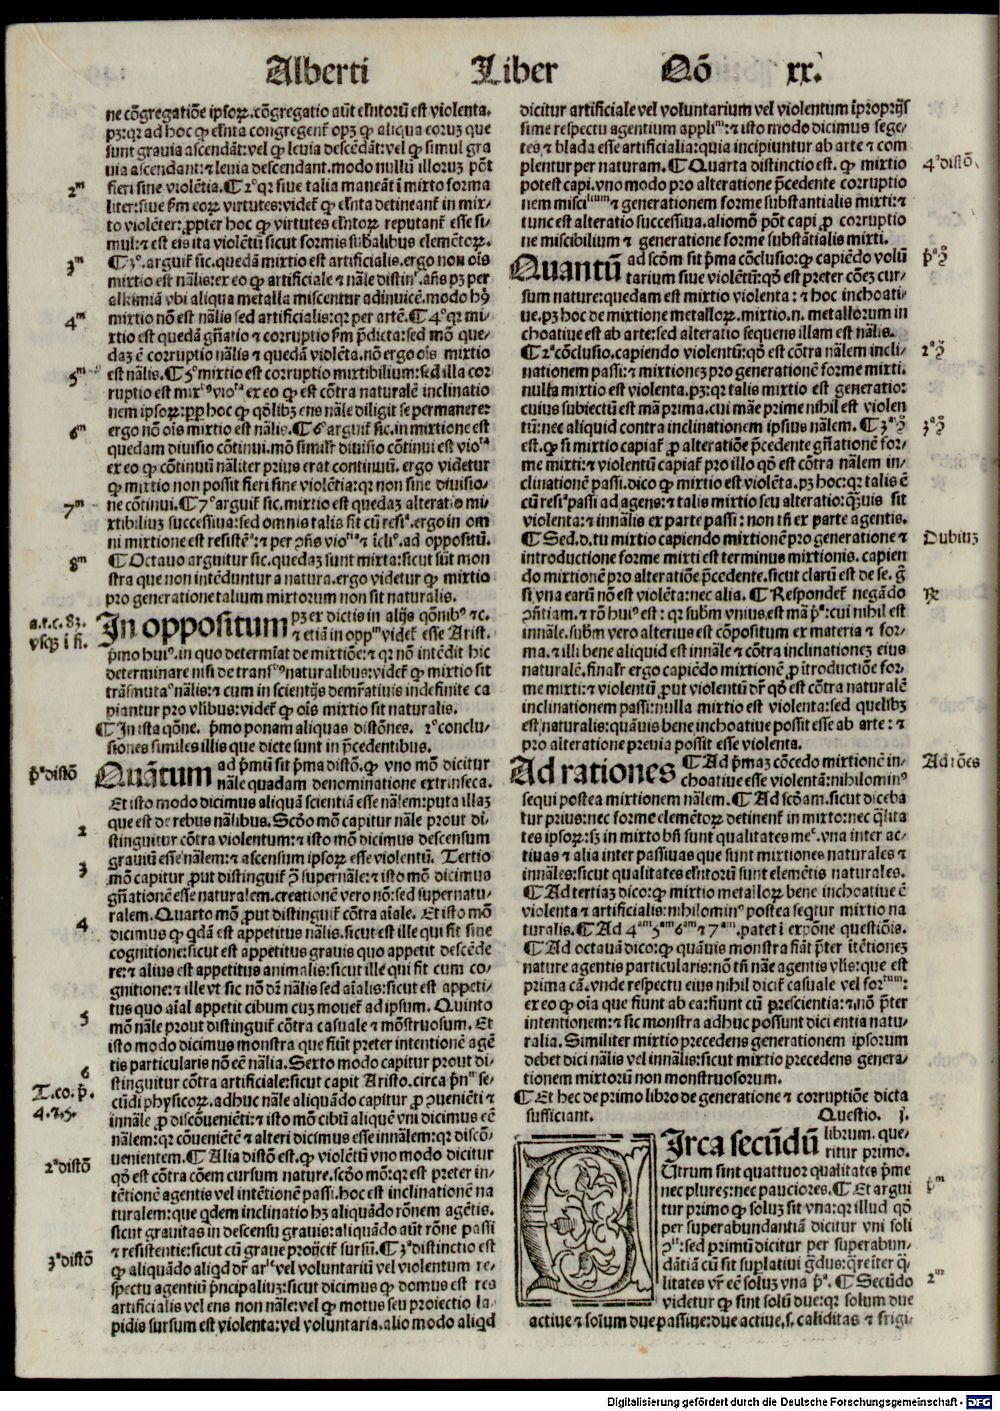 Alberti Liber Qō xx.
ne cōgregatiōe ipsoꝝ. cōgregatio aūt elntorū est violenta.
pꝫ: qꝛ ad hoc ꝙ elnta congregent̄ opꝫ ꝙ aliqua eoruꝫ que
sunt gravia ascendāt: vel ꝙ levia descēdāt: vel ꝙ simul gra
via ascendant: ⁊ levia descendant. modo nullū illoruꝫ pōt
2ᵐ
fieri sine violētia. ¶ 2° qꝛ sive talia maneāt ī mixto forma
liter: sive ꝓm eoꝝ virtutes: videt̄ ꝙ elnta detineant̄ in mix⸗
to violēter: ꝓpter hoc ꝙ virtutes elntoꝝ reputant̄ esse si⸗
mul: ⁊ est eis ita violētū sicut formis subalibus elemētoꝝ.
3ᵐ
¶ 3°. arguit̄ sic. quedā mixtio est artificialis. ergo non oīs
mixtio est nālis: ex eo ꝙ artificiale ⁊ nāle distinꝰ. añs pꝫ per
alkimiā vbi aliqua metalla miscentur adinuicē. modo hꝰ
4ᵐ
mixtio nō est nālis sed artificialis: qꝛ per artē. ¶ 4° qꝛ mi⸗
xtio est quedā gn̄atio ⁊ corruptio ꝓm p̄dicta: sed mō que⸗
daꝫ ē corruptio nālis ⁊ quedā violēta. nō ergo oīs mixtio
5ᵐ
est nālis. ¶ 5° mixtio est corruptio mixtibilium: sed illa cor
ruptio est mixᵗᵒ vioᵗᵃ ex eo ꝙ est cōtra naturalē inclinatio
nem ipsoꝝ: ꝓp̄ hoc ꝙ qōlibꝫ ens nāle diligit se permanere:
6ᵐ
ergo nō oīs mixtio est nālis. ¶ 6° arguit̄ sic. in mixtione est
quedam divisio cōtinui. mō similr̄ divisio cōtinui est vioᵗᵃ
ex eo ꝙ cōtinuū nāliter prius erat continuū. ergo videtur
ꝙ mixtio non possit fieri sine violētia: qꝛ non sine divisio⸗
7ᵐ
ne cōtinui. ¶ 7° arguit̄ sic. mixtio est quedaꝫ alteratio mi⸗
xtibiliuꝫ successiva: sed omnis talis fit cū resᵃ. ergo in om
ni mixtione est resistēᵃ: ⁊ per ꝯn̄s vioᵗⁱᵃ ⁊ īclᵒ. ad oppositū.
8ᵐ
¶ Octavo arguitur sic. quedaꝫ sunt mixta: sicut sūt mon
stra que non intēduntur a natura. ergo videtur ꝙ mixtio
pro generatione talium mixtorum non sit naturalis.
a.r.c. 83.
vsqꝫ ī fi.
In oppositum pꝫ ex dictis in alijs qōnibꝰ ⁊c.
⁊ etiā in oppᵐ videt̄ esse Arist.
p̄mo huiꝰ. in quo determīat de mixtiōe: ⁊ qꝛ nō intēdit hic
determinare nisi de transᵇꝰ naturalibus: videt̄ ꝙ mixtio sit
trāsmutaᵒ nālis: ⁊ cum in scientijs demr̄ativis indefinite ca
piantur pro vlibus: videt̄ ꝙ oīs mixtio sit naturalis.
¶ In ista qōne. p̄mo ponam aliquas distōnes. 2° conclu⸗
siones similes illis que dicte sunt in p̄cedentibus.
p̄ᵃ distō
Quātum ad p̄mū sit p̄ma distō. ꝙ vno mō dicitur
nāle quadam denominatione extrinseca.
Et isto modo dicimus aliquā scientiā esse nālem: puta illaꝫ
2
que est de rebus nālibus. Scd̄o mō capitur nāle prout di⸗
stinguitur cōtra violentum: ⁊ isto mō dicimus descensum
3
graviū esse nālem: ⁊ ascensum ipsoꝝ esse violentū. Tertio
mō capitur ꝓut distinguit̄ ꝯ̄ supernāle: ⁊ isto mō dicimus
gn̄ationē esse naturalem. creationē vero nō: sed supernatu⸗
ralem. Quarto mō ꝓut distinguit̄ cōtra aīale. Et isto mō
4
dicimus ꝙ qdā est appetitus nālis. sicut est ille qui fit sine
cognitione: sicut est appetitus gravis quo appetit descēde
re: ⁊ alius est appetitus animalis: sicut ille qui fit cum co⸗
gnitione: ⁊ ille vt sic nō dr̄ nālis sed aīalis: sicut est appeti⸗
tus quo aīal appetit cibum cuꝫ movet̄ ad ipsum. Quinto
5
mō nāle prout distinguit̄ cōtra casuale ⁊ mōstruosum. Et
isto modo dicimus monstra que fiūt preter intentionē agē
tis particularis nō eē nālia. Sexto modo capitur prout di⸗
6
T.co.p̄.
4.⁊.5.
stinguitur cōtra artificiale: sicut capit Aristo. circa p̄nᵐ se⸗
cūdi physicoꝝ. adhuc nāle aliquādo capitur ꝓ ꝯuenieti ⁊
innāle ꝓ discōuenieti: ⁊ isto mō cibū aliquē vni dicimus eē
nālem: qꝛ cōuenietē ⁊ alteri dicimus esse innālem: qꝛ discō⸗
2ᵃ distō
uenientem. ¶ Alia distō est. ꝙ violētū vno modo dicitur
qō est cōtra cōem cursum nature. scd̄o mō: qꝛ est preter in⸗
tētionē agentis vel intētionē passi. hoc est inclinationē na
turalem: que qdem inclinatio hꝫ aliquādo rōnem agētis.
sicut gravitas in descensu gravis: aliquādo aūt rōne passi
3ᵃ distō
⁊ resistentie: sicut cū grave proijcit̄ sursū. ¶ 3ᵃ distinctio est
ꝙ aliquādo aliqd dr̄ arᵗᵉ vel voluntariū vel violentum re⸗
spectu agentiū p̄ncipaliuꝫ: sicut dicimus ꝙ domus est res
artificialis vel ens non nāle: vel ꝙ motus seu proiectio la⸗
pidis sursum est violenta: vel voluntaria. alio modo aliqd
dicitur artificiale vel voluntarium vel violentum īproprijs
sime respectu agentium appliᵐ: ⁊ isto modo dicimus sege⸗
tes ⁊ blada esse artificialia: quia incipiuntur ab arte ⁊ com
4ᵃ distō
plentur per naturam. ¶ Quarta distinctio est. ꝙ mixtio
potest capi. vno modo pro alteratione p̄cedente corruptio
nem misciˡⁱᵘᵐ ⁊ generationem forme substantialis mixti: ⁊
tunc est alteratio successiva. aliomō pōt capi ꝓ corruptio
ne miscibilium ⁊ generatione forme substātialis mixti.
p̄ᵃ ꝯ̄
Quantū ad scd̄m sit p̄ma cōclusio: ꝙ capiēdo volū
tarium sive violētū: qō est preter cōeꝫ cur⸗
sum nature: quedam est mixtio violenta: ⁊ hoc inchoati⸗
ve. pꝫ hoc de mixtione metalloꝝ. mixtio.n. metallorum in
choative est ab arte: sed alteratio sequens illam est nālis.
2ᵃ ꝯ̄
¶ 2ᵃ cōclusio. capiendo violentū: qō est cōtra nālem incli⸗
nationem passi: ⁊ mixtioneꝫ pro generationē forme mixti.
nulla mixtio est violenta. pꝫ: qꝛ talis mixtio est generatio:
cuius subiectū est mā prima. cui māe prime nihil est violen
3ᵃ ꝯ̄
tū: nec aliquid contra inclinationem ipsius nālem. ¶ 3ᵃ ꝯ̄
est. ꝙ si mixtio capiat̄ ꝓ alteratiōe p̄cedente gn̄ationē for⸗
me mixti: ⁊ violentū capiat̄ pro illo qō est cōtra nālem in⸗
clinationē passi. dico ꝙ mixtio est violēta. pꝫ hoc: qꝛ talis ē
cū resᵃ passi ad agens: ⁊ talis mixtio seu alteratio: ꝙ̄uis sit
violenta: ⁊ innālis ex parte passi: non tn̄ ex parte agentis.
Dubitꝫ
¶ Sed. d. tu mixtio capiendo mixtionē pro generatione ⁊
introductione forme mixti est terminus mixtionis. capien
do mixtionē pro alteratiōe p̄cedente. sicut clarū est de se. g̊
℞
si vna earū nō est violēta: nec alia. ¶ Respondet̄ negādo
ꝯn̄tiam. ⁊ rō huiꝰ est: qꝛ subm̄ vnius est mā p̄ᵃ: cui nihil est
innāle. subm̄ vero alterius est cōpositum ex materia ⁊ for⸗
ma. ⁊ illi bene aliquid est innāle ⁊ cōtra inclinationeꝫ eius
naturalē. finalr̄ ergo capiēdo mixtionē ꝓ ītroductiōe for⸗
me mixti: ⁊ violentū ꝓut violentū dr̄ qō est cōtra naturalē
inclinationem passi: nulla mixtio est violenta: sed quelibꝫ
est naturalis: quāvis bene inchoative possit esse ab arte: ⁊
pro alteratione previa possit esse violenta.
Ad rōes
Ad rationes ¶ Ad p̄maꝫ cōcedo mixtionē in⸗
choative esse violentā: nihilominꝰ
sequi postea mixtionem nālem. ¶ Ad scd̄am. sicut diceba
tur prius: nec forme elemētoꝝ detinent̄ in mixto: nec q̄lita
tes ipsoꝝ: sꝫ in mixto bn̄ sunt qualitates meᵉ. vna inter ac⸗
tivas ⁊ alia inter passivas que sunt mixtiones naturales ⁊
innāles: sicut qualitates elntorū sunt elemētis naturales.
¶ Ad tertiaꝫ dico: ꝙ mixtio metalloꝝ bene inchoative ē
violenta ⁊ artificialis: nihilominꝰ postea seqtur mixtio na
turalis. ¶ Ad 4ᵃᵐ 5ᵃᵐ 6ᵃᵐ ⁊ 7ᵃᵐ. patet ī expōne questiōis.
¶ Ad octavā dico: ꝙ quāvis monstra fiāt p̄ter ītētioneꝫ
nature agentis particularis: nō tn̄ nāe agentis vlis: que est
prima cā. vnde respectu eius nihil dicit̄ casuale vel forᵗᵘᵐ:
ex eo ꝙ oīa que fiunt ab ea: fiunt cū prescientia: ⁊ nō p̄ter
intentionem: ⁊ sic monstra adhuc possunt dici entia natu⸗
ralia. Similiter mixtio precedens generationem ipsorum
debet dici nālis vel innālis: sicut mixtio precedens genera⸗
tionem mixtorū non monstruosorum.
¶ Et hec de primo libro de generatione ⁊ corruptiōe dicta
sufficiant. Questio. j.
Circa secūdū librum. que⸗
ritur primo.
Utrum sint quattuor qualitates p̄me
p̄ᵐ
nec plures: nec pauciores. ¶ Et argui
tur primo ꝙ soluꝫ sit vna: qꝛ illud qō
per superabundantiā dicitur vni soli
ꝯᵗ: sed primū dicitur per superabun⸗
dātiā cū sit suplativi gdus: q̄re īter q̄⸗
2ᵐ
litates vr̄ eē soluꝫ vna p̄ᵃ. ¶ Secūdo
videtur ꝙ sint solū due: qꝛ solum due
active ⁊ solum due passive: due active. s. caliditas ⁊ frigi⸗
Digitalisierung gefördert durch die Deutsche Forschungsgemeinschaft - DFG